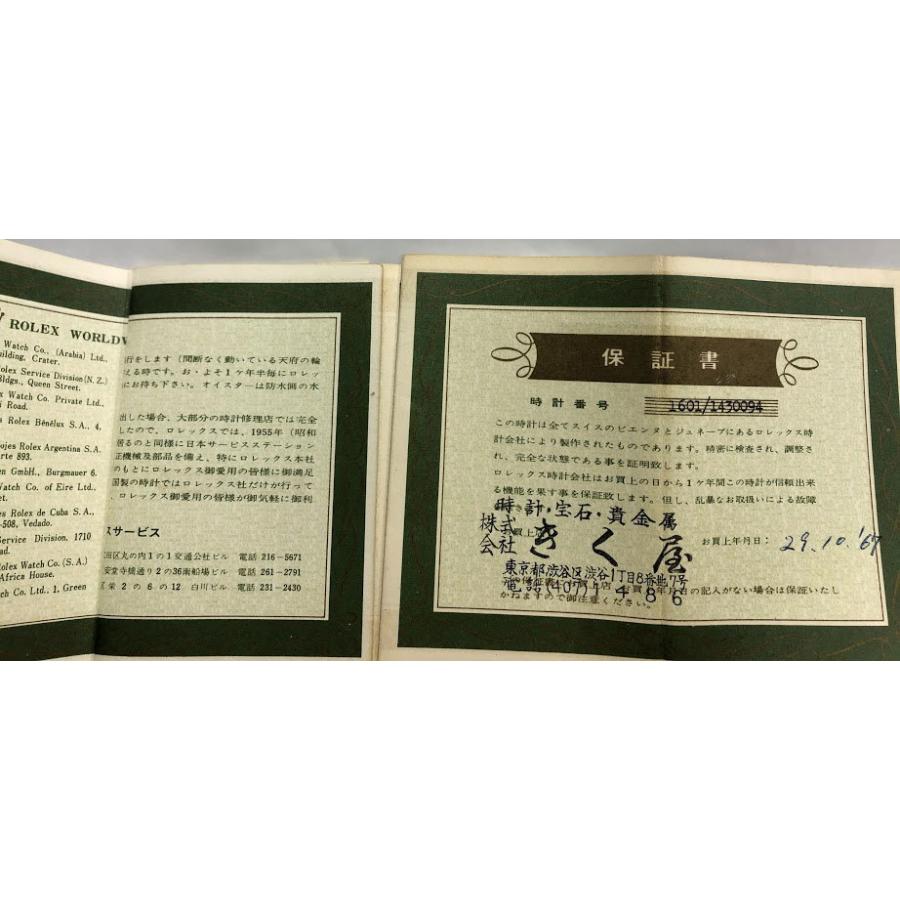 ROLEX WORLDW
Watch Co., (Arabia) Ltd.,
uilding, Crater.
olex Service Division (N.Z.)
Bldgs., Queen Street.
x Watch Co. Private Ltd.,
i Road.
Rolex Bénélux S.A., 4,
ojes Rolex Argentina S.A.
rte 893.
en GmbH., Burgmauer 6.
Watch Co. of Eire Ltd.,
et.
s Rolex de Cuba S.A.,
-508, Vedado.
Service Division, 1710
oad.
Rolex Watch Co. (S.A.)
Africa House.
tch Co. Ltd., 1, Green
行をします(間断なく動いている天府の輪
える時です。お・よそ1ケ年半毎にロレッ
にお持ち下さい。オイスターは防水側の水
出した場合、大部分の時計修理店では完全
したので、ロレックスでは、1955年(昭和
居るのと同様に日本サービスステーション
正機械及部品を備え、特にロレックス本社
のもとにロレックス御愛用の皆様に御満足
国製の時計ではロレックス社だけが行って
、ロレックス御愛用の皆様が御気軽に御利
スサービス
田区丸の内1の1交通公社ビル 電話 216-5671
安堂寺橋通り2の36南船場ビル 電話 261-2791
区栄2の6の12 白川ビル 電話 231-2430
保証書
時計番号 1601/1430094
この時計は全てスイスのビエンヌとジュネーブにあるロレックス時
計会社により製作されたものであります。精密に検査され、調整さ
れ、完全な状態である事を証明致します。
ロレックス時計会社はお買上の日から1ケ年間この時計が信頼出来
る機能を果す事を保証致します。但し、乱暴なお取扱いによる故障
時計・宝石・貴金属
株式会社 きく屋
お買上年月日: 29.10.'67
東京都渋谷区渋谷1丁目8番地7号
電話(407)1486
の記入がない場合は保証いたし
かねますので御注意ください。